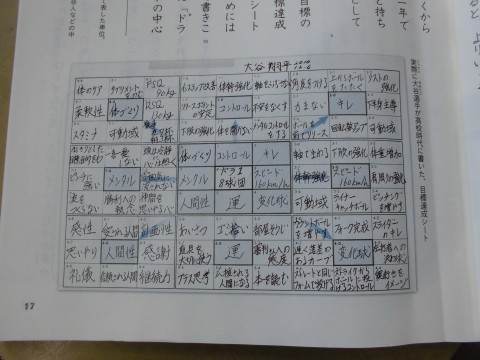 ると、上り
くから
年て
と持ち
として
目標の
標達成
シート
めには
書きこ
「ドラ
の中心
表した単位。
る人などの中
大谷翔平
実際に大谷選手が高校時代に書いた、目標達成シート
体のケア サプリメントをのむ FSQ 90kg インステップ改善 体幹強化 軸をぶらさない 角度をつける 上からボールをたたく リストの強化
柔軟性 体づくり RSQ 130kg リリースポイントの安定 コントロール 不安をなくす 力まない キレ 下半身主導
スタミナ 可動域 下肢の強化 体を開かない メンタルコントロールをする ボールを前でリリース 回転数アップ 可動域
はっきりとした目標、目的をもつ 一喜一憂しない 頭は冷静に心は熱く 体づくり コントロール キレ 軸でまわる 下肢の強化 体重増加
ピンチに強い メンタル 雰囲気に流されない メンタル ドラ1 8球団 スピード160km/h 体幹強化 スピード160km/h 肩周りの強化
波をつくらない 勝利への執念 仲間を思いやる心 人間性 運 変化球 可動域 ライナーキャッチボール ピッチングを増やす
感性 愛される人間 計画性 あいさつ ゴミ拾い 部屋そうじ カウントボールを増やす フォーク完成 スライダーのキレ
思いやり 人間性 感謝 道具を大切に使う 運 審判さんへの態度 遅く落差のあるカーブ 変化球 左打者への決め球
礼儀 信頼される人間 継続力 プラス思考 応援される人間になる 本を読む ストレートと同じフォームで投げる ストライクからボールに投げるコントロール 奥行きをイメージ
17